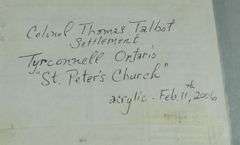 Colonel Thomas Talbot
Settlement
Tyrconnell Ontario
"St. Peter's Church"
acrylic - Feb 11th, 2006